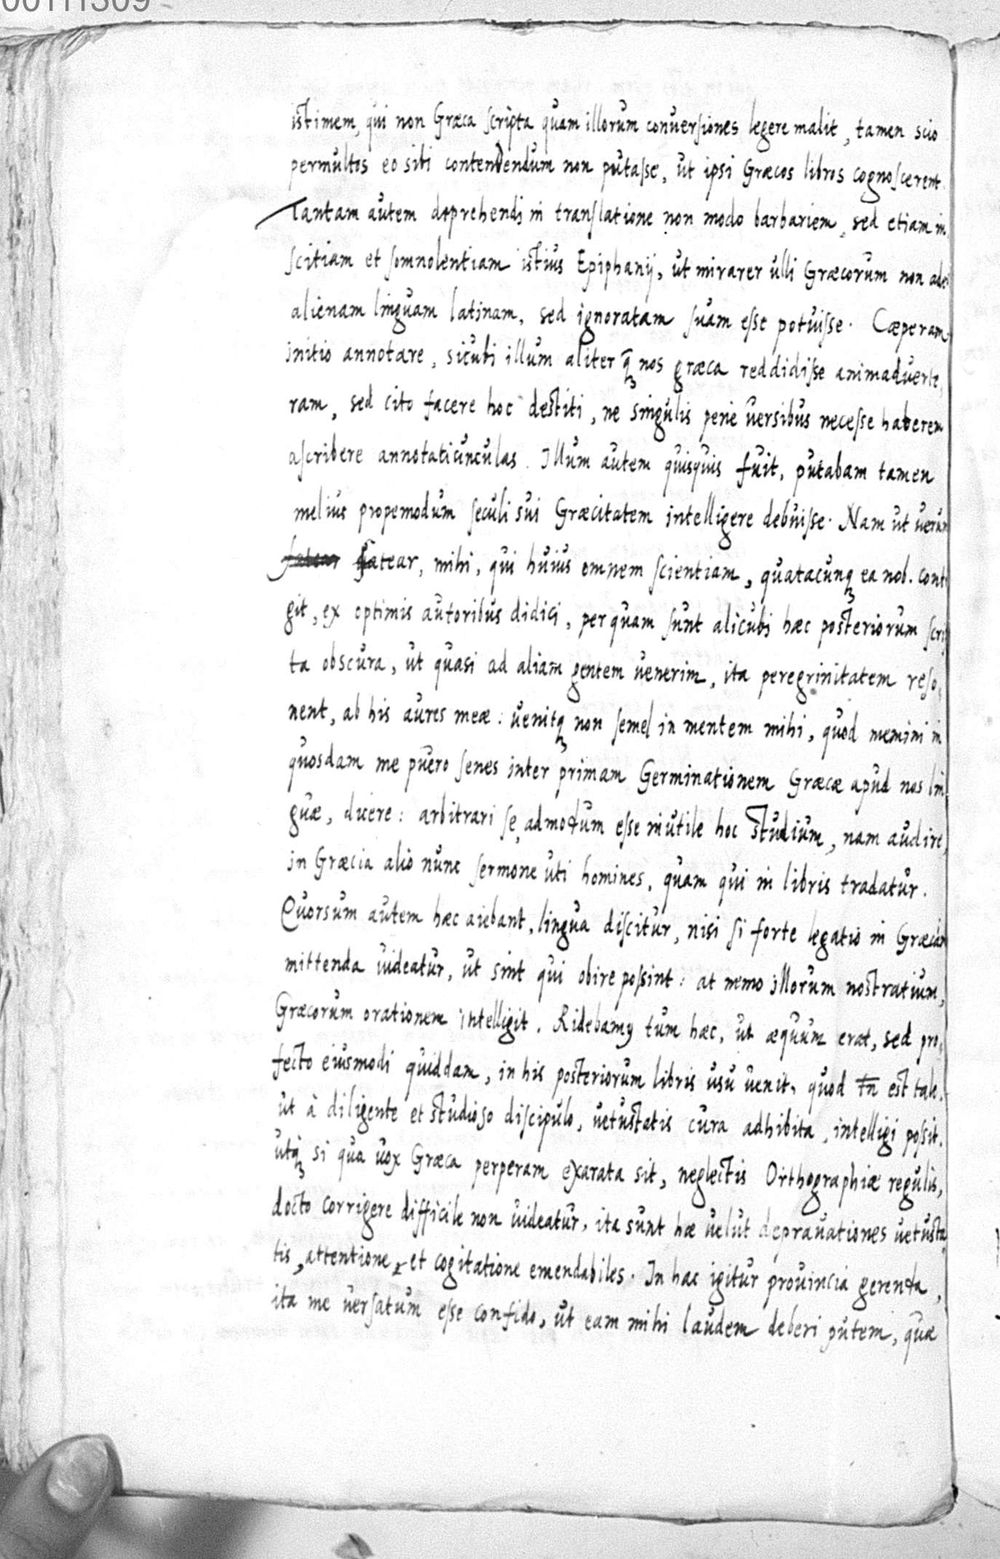 00111309
istimem, qui non Græca scripta quam illorum conuersiones legere malit, tamen scio
permultos eo sibi contendendum non putasse, ut ipsi Græcos libros cognoscerent.
Tantam autem deprehendi in translatione non modo barbariem, sed etiam in
scitiam et somnolentiam istius Epiphanij, ut mirarer ulli Græcorum non adeo
alienam linguam latinam, sed ignoratam suam esse potuisse. Cæperam
initio annotare, sicubi illum aliter q̃ nos græca reddidisse animaduerte,
ram, sed cito facere hoc destiti, ne singulis pene uersibus necesse haberem
ascribere annotatiunculas. Illum autem quisquis fuit, putabam tamen
melius propemodum seculi sui Græcitatem intelligere debuisse. Nam ut uerum
fatear fatear, mihi, qui huius omnem scientiam, quatacunq ea nob. conti
git, ex optimis autoribus didici, perquam sunt alicubi hæc posteriorum scrip
ta obscura, ut quasi ad aliam gentem uenerim, ita peregrinitatem reso,
nent, ab his aures meæ: uenitq non semel in mentem mihi, quod memini in
quosdam me puero senes inter primam Germinationem Græcæ apud nos lin
guæ, dicere: arbitrari se admodum esse inutile hoc studium, nam audire,
in Græcia alio nunc sermone uti homines, quam qui in libris tradatur.
Quorsum autem hæc aiebant, lingua discitur, nisi si forte legatio in Græciam
mittenda uideatur, ut sint qui obire possint: at nemo illorum nostratium,
Græcorum orationem intelligit. Ridebamq tum hæc, ut æquum erat, sed pro,
fecto eiusmodi quiddam, in his posteriorum libris usu uenit, quod tn̄ est tale.
ut à diligente et studioso discipulo, uetustatis cura adhibita, intelligi possit.
utq si qua uox Græca perperam exarata sit, neglectis Orthographiæ regulis,
docto corrigere difficile non uideatur, ita sunt hæ uelut deprauationes uetusta
tis, attentione, et cogitatione emendabiles. In hac igitur prouincia gerenda,
ita me uersatum esse confido, ut eam mihi laudem deberi putem, quæ